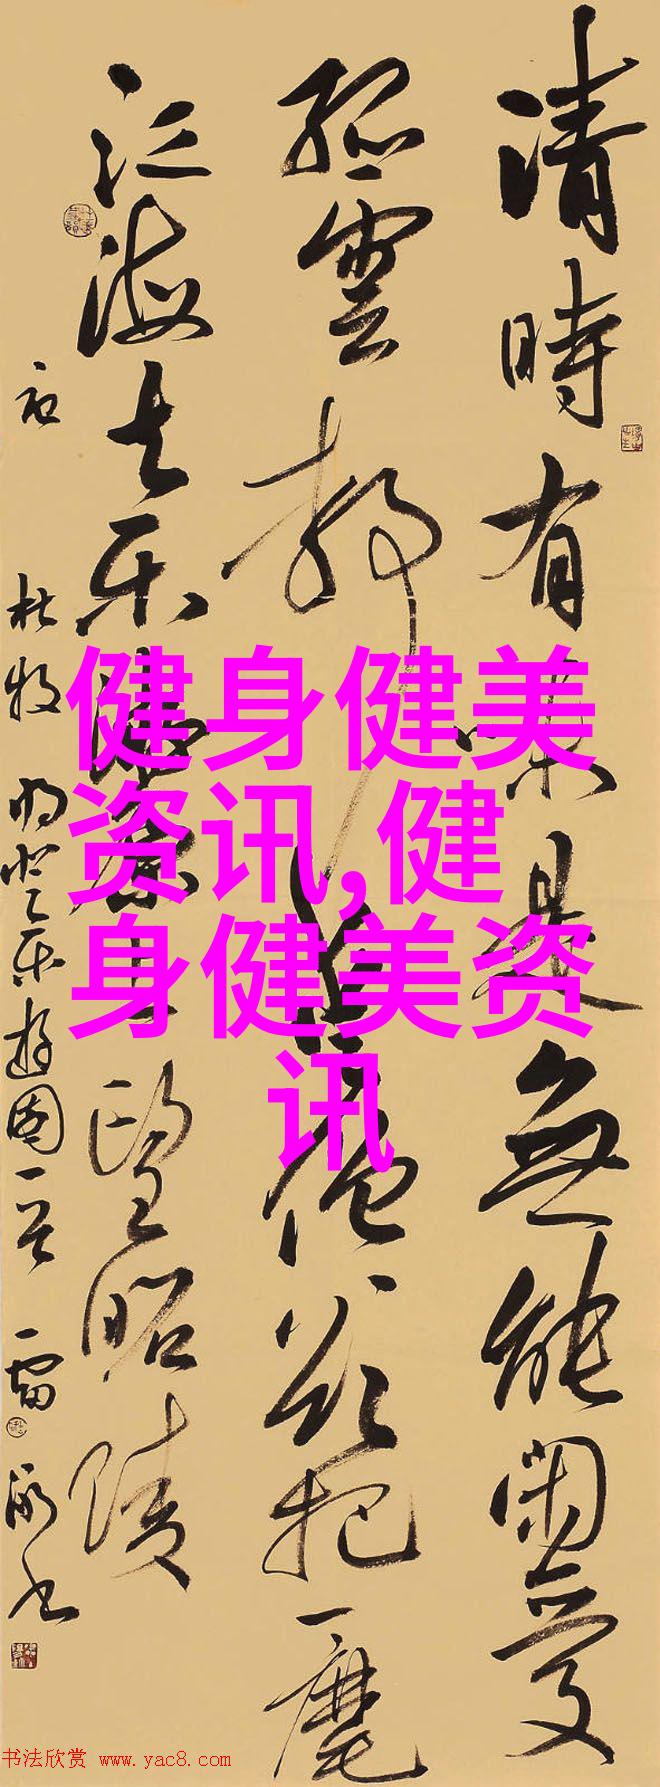 清時有味是無能閑愛
孤雲静愛僧欲把一麾
江海去乐遊原上望昭陵
杜牧
健身健美
资讯,健
身健美资
讯
书法欣赏 www.yac8.com